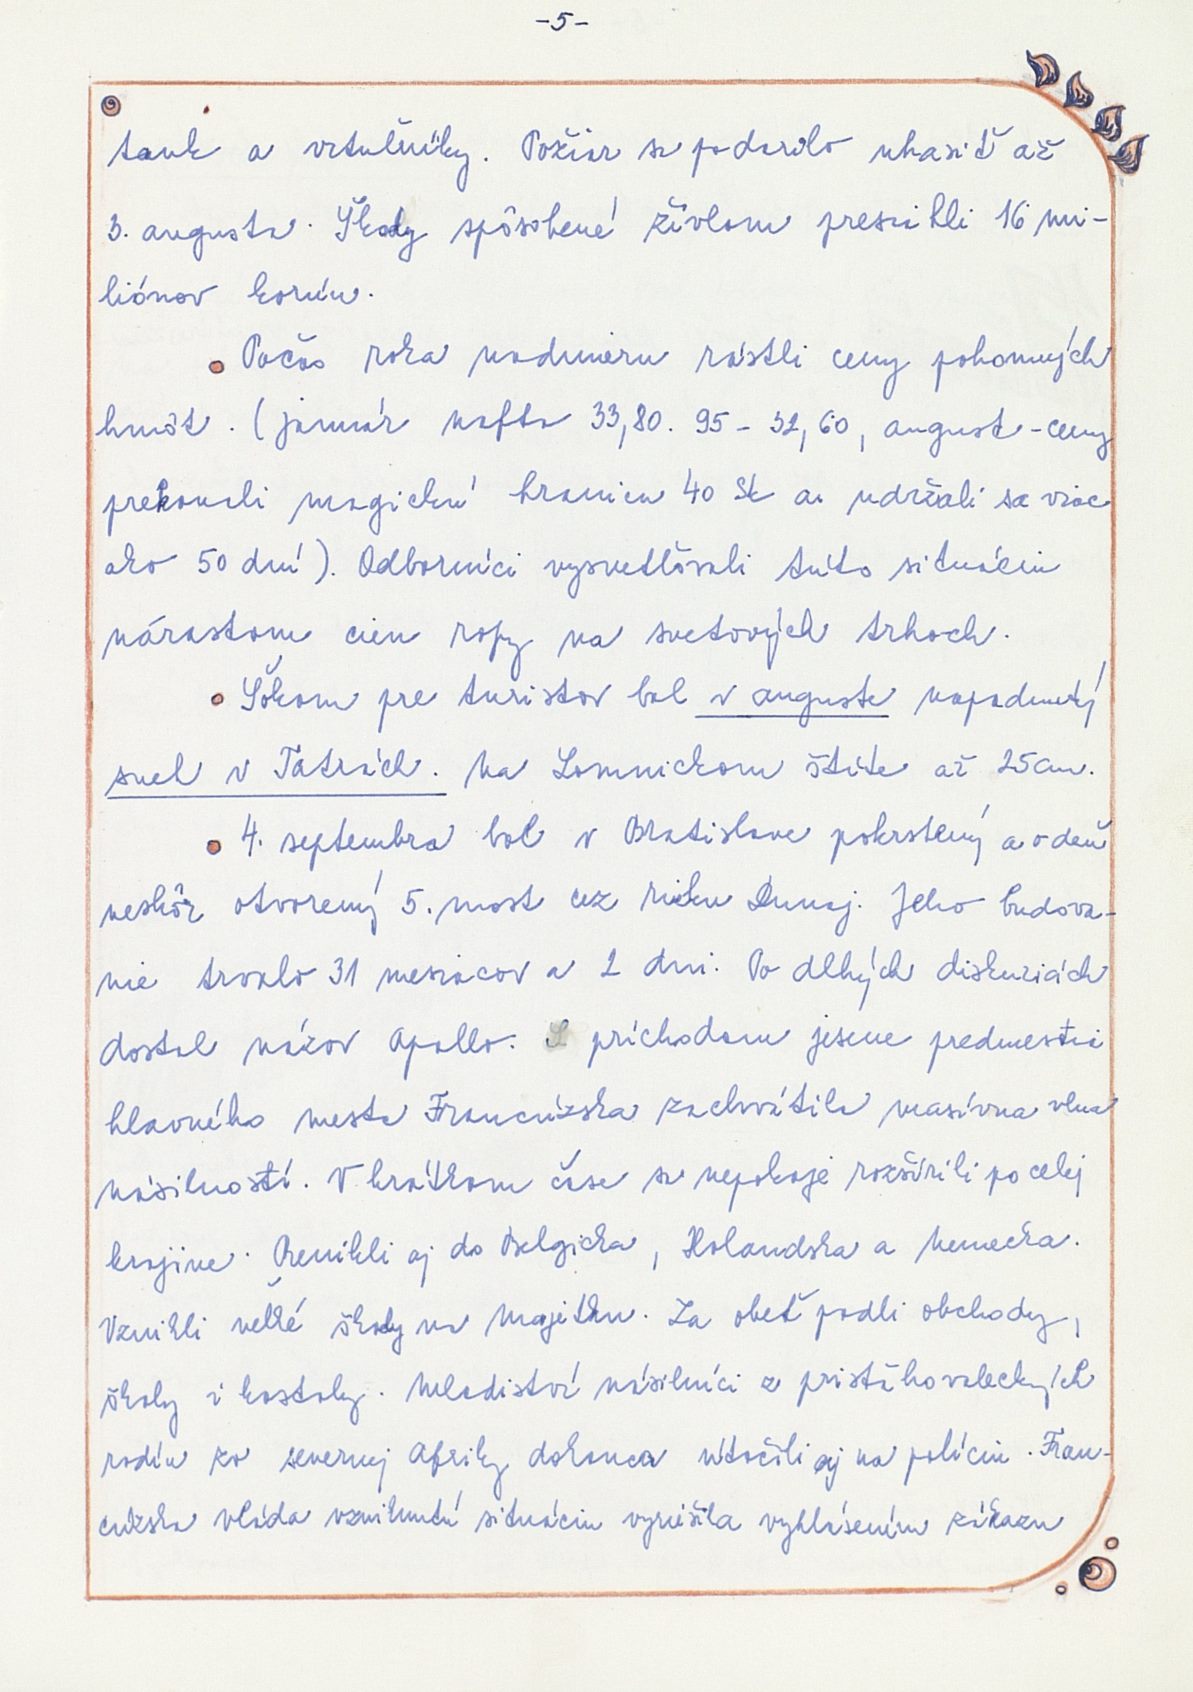 -5-
tank a vrtuľníky. Požiar sa podarilo uhasiť až
3. augusta. Škody spôsobené živlom presiahli 16 mi-
liónov korún.
Počas roka nadmieru rástli ceny pohonných
hmôt. (január nafta 33,80. 95 - 32,60, august - ceny
prekonali magickú hranicu 40 Sk a udržali sa viac
ako 50 dní). Odborníci vysvetľovali túto situáciu
nárastom cien ropy na svetových trhoch.
Šokom pre turistov bol v auguste napadnutý
sneh v Tatrách. Na Lomnickom štíte až 25cm.
4. septembra bol v Bratislave pokrstený a o deň
neskôr otvorený 5. most cez rieku Dunaj. Jeho budova-
nie trvalo 31 mesiacov a 2 dni. Po dlhých diskusiách
dostal názov Apollo. S príchodom jesene predmestia
hlavného mesta Francúzska zachvátila masívna vlna
násilností. V krátkom čase sa nepokoje rozšírili po celej
krajine. Prenikli aj do Belgicka, Holandska a Nemecka.
Vznikli veľké škody na majetku. Za obeť padli obchody,
školy i kostoly. Mladiství násilníci z prisťahovaleckých
rodín zo severnej Afriky dokonca útočili aj na políciu. Fran-
cúzska vláda vzniknutú situáciu vyriešila vyhlásením zákazu